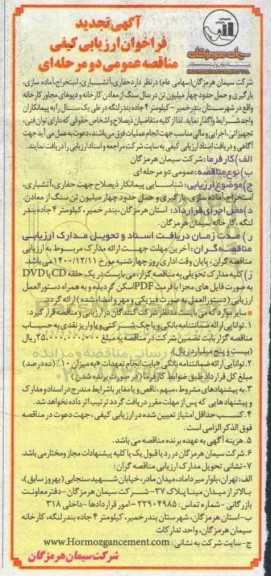 آگهی تجدید
فراخوان ارزیابی کیفی
مناقصه عمومی دو مرحله ای
شرکت سیمان هرمزگان (سهامی عام) در نظر دارد حفاری، آتشباری، استخراج، آماده سازی،
بارگیری و حمل حدود چهار میلیون تن در سال سنگ از معادن کارخانه و دپوهای مجاور کارخانه
واقع در شهرستان بندر خمیر - کیلومتر ۴ جاده بندر لنگه در طی یک سال را به پیمانکاران
واجد شرایط واگذار نماید. لذا از کلیه متقاضیان ذیصلاح و اشخاص حقوقی که دارای توان فنی،
تجهیزاتی، اجرایی و مالی مناسب جهت انجام عملیات فوق می باشند، دعوت به عمل می آید جهت
آگاهی و دریافت اسناد ارزیابی کیفی به سایت شرکت مراجعه و اسناد ارزیابی را دریافت نمایند.
الف) کارفرما: شرکت سیمان هرمزگان
ب) نوع مناقصه: عمومی دو مرحله ای
ج) موضوع ارزیابی: شناسایی پیمانکار ذیصلاح جهت حفاری، آتشباری،
استخراج، آماده سازی، بارگیری و حمل حدود چهار میلیون تن سنگ از معادن
د) محل اجرای قرارداد: استان هرمزگان، بندر خمیر، کیلومتر ۴ جاده بندر
لنگه، کارخانه سیمان هرمزگان
ر) مدت زمان دریافت اسناد و تحویل مدارک ارزیابی
مناقصه گران: آخرین مهلت جهت ارائه مدارک مربوط به ارزیابی
مناقصه گران، پایان وقت اداری روز چهارشنبه مورخ ۱۴۰۰/۱۲/۱۱ می باشد.
ز) کلیه مدارک تحویلی به مناقصه گزار، می بایست در یک حلقه CD یا DVD
به صورت فایل های مجزا با فرمت PDF اسکن گردیده و به همراه دستورالعمل
ارزیابی (دستورالعمل به صورت فیزیکی و مهر و امضاء شده) ارائه گردد.
- سایر موارد که می بایست مدنظر شرکت کنندگان در ارزیابی و مناقصه قرار گیرد:
۱. توانایی ارائه ضمانتنامه بانکی و یا چک شرکتی و یا واریز نقدی به حساب
مناقصه گزار بابت تضمین شرکت در مناقصه به مبلغ ۲۵،۰۰۰،۰۰۰،۰۰۰ ریال
(بیست و پنج میلیارد ریال)
۲. توانایی ارائه ضمانتنامه بانکی بابت انجام تعهدات به میزان ۱۰٪ (ده درصد)
مبلغ کل قرارداد طبق ضوابط کارفرما (در صورت برنده شدن)
۳. به پیشنهادهای مشروط، مبهم، ناقص و یا مغایر با شرایط مندرج در اسناد و مدارک
و پیشنهادهایی که پس از مهلت مقرر دریافت گردد ترتیب اثر داده نخواهد شد.
۴. کسب حداقل امتیاز تعیین شده در ارزیابی کیفی، جهت دعوت در مناقصه
فوق الذکر الزامی است.
۵. هزینه آگهی به عهده برنده مناقصه می باشد.
۶. شرکت سیمان هرمزگان در رد یا قبول یک یا کلیه پیشنهادات مجاز و مختار می باشد.
۷- نشانی تحویل مدارک ارزیابی مناقصه گران:
الف- تهران، بلوار میرداماد، میدان مادر، خیابان شهید سنجابی (بهروز سابق)،
بالاتر از میدان مینا پلاک ۳۷ - شرکت سیمان هرمزگان - دفتر معاونت
بازرگانی - شماره تماس: ۲۲۹۰۴۹۸۵ - امور قراردادها - داخلی ۳۱۸
ب- استان هرمزگان، شهرستان بندر خمیر، کیلومتر ۴ جاده بندر لنگه، کارخانه
سیمان هرمزگان، واحد تدارکات
ج- سایت شرکت به نشانی: www.Hormozgancement.com
شرکت سیمان هرمزگان